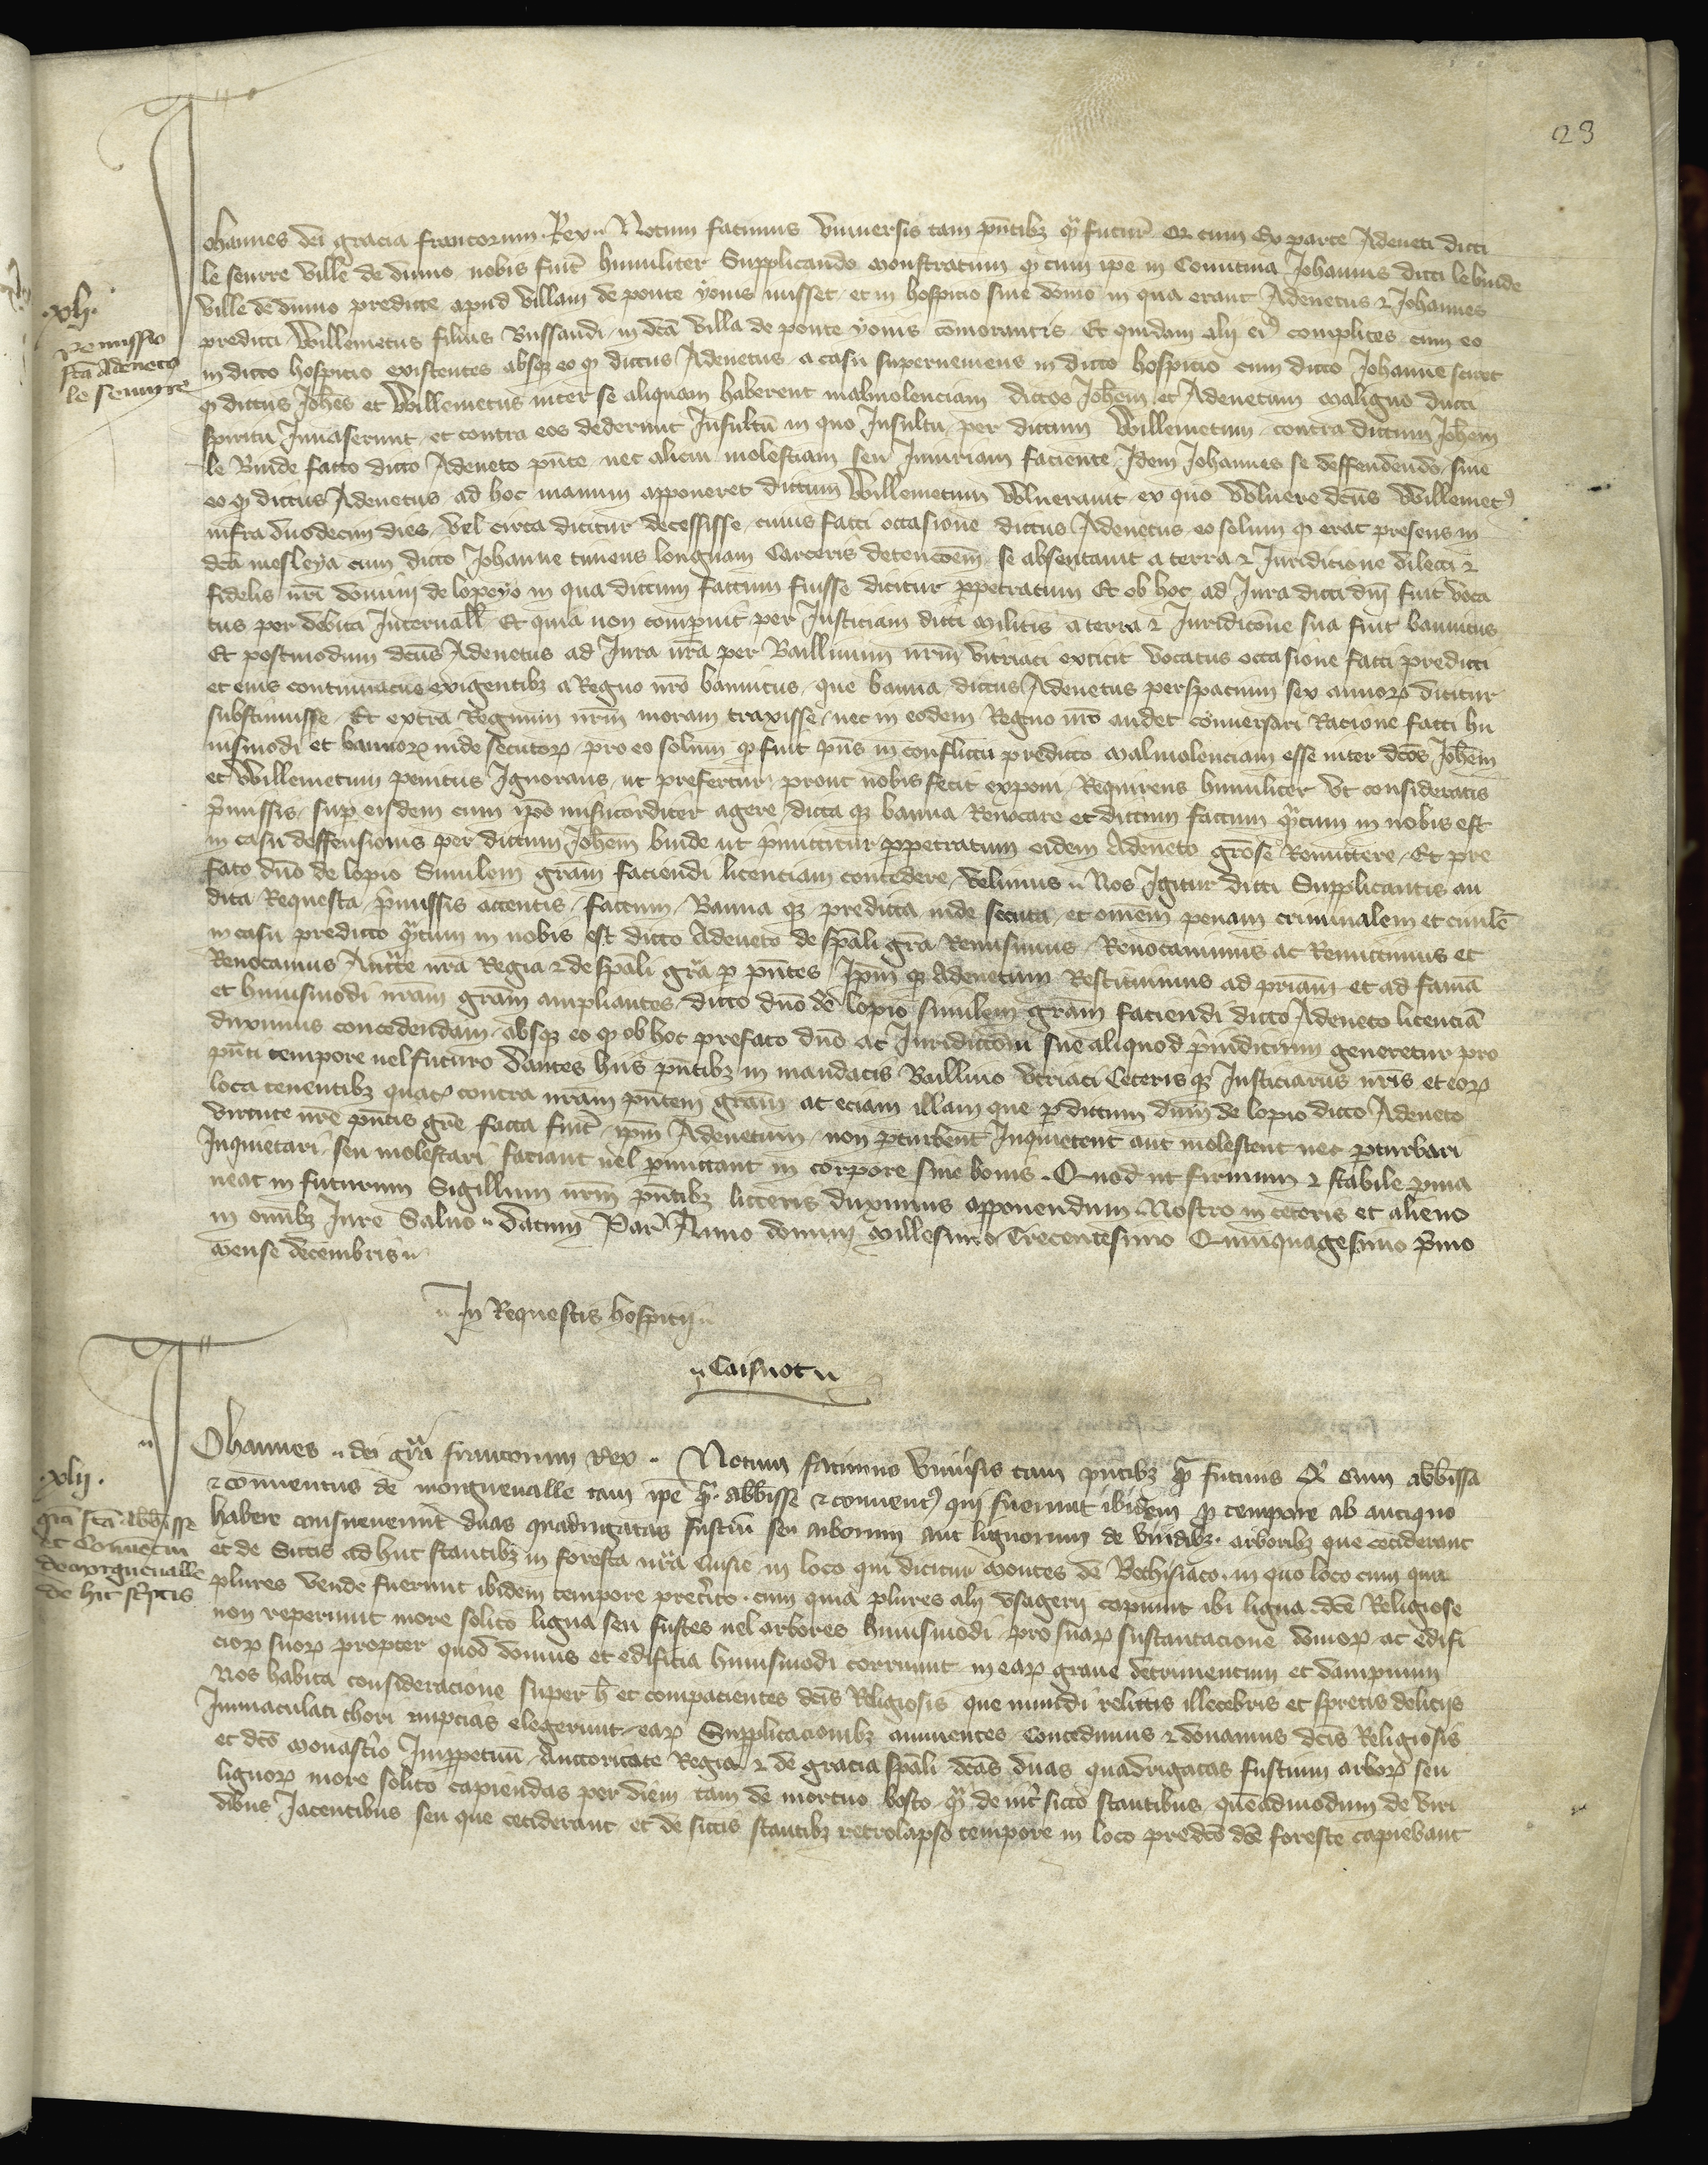 23
Johannes dei gracia francorum Rex Notum facimus universis tam pñtibz q̃ futur̃ Q cum Ex parte Adeneti dicti
le seurre ville de dunio nobis fuit humiliter Supplicando monstratum q cum ipe in Comitiva Johannis dicti le buide
ville de dunio predicte apud villam de ponte yonis ivisset et in hospicio sive domo in qua erant Adenetus & Johannes
predicti Willemetus filius Bussandi in dcã villa de ponte yonis cõmorantis Et quidam alij ei9 complices cum eo
in dicto hospicio existentes absqz eo q dictus Adenetus a casu superveniens in dicto hospicio cum dicto Johanne sciret
q dictus Joħes et Willemetus inter se aliquam haberent malivolenciam dictos Joħem et Adenetum maligno ducti
spiritu Invaserunt et contra eos dederunt Insultũ in quo Insultu per dictum Willemetum contra dictum Joħem
le Buide facto dicto Adeneto pñte nec alicui molestiam seu Iniuriam faciente Idem Johannes se deffendendo sine
eo q dictus Adenetus ad hoc manum apponeret dictum Willemetum Wlneravit ex quo Wlnere dcũs Willemet9
infra duodecim dies vel circa dicitur decessisse cuius facti occasione dictus Adenetus eo solum q erat presens in
dcã mesleya cum dicto Johanne timens longuam Carceris detencõem se absentavit a terra & Iuridicione dilecti &
fidelis nr̃i domini de lopeyo in qua dictum factum fuisse dicitur ppetratum Et ob hoc ad Iura dicti dñi fuit voca
tus per debita Intervall̃ Et quia non comparuit per Iusticiam dicti militis a terra & Iuridicione sua fuit bannitus
Et postmodum dcũs Adenetus ad Iura nr̃a per Baillivum nr̃m vitriaci extitit vocatus occasione facti predicti
et eius contumacie exigentibz a Regno nr̃o bannitus que banna dictus Adenetus per spacium sex annor dicitur
substinuisse Et extra Regnum nr̃m moram traxisse nec in eodem Regno nr̃o audet conversari Racione facti hu
iusmodi et bannor inde secutor pro eo solum q fuit pñs in conflictu predicto malivolenciam esse inter dcõs Joħem
et Willemetum penitus Ignorans ut prefertur prout nobis fecit exponi Requirens humiliter ut consideratis
p̃missis sup eisdem cum ip̃o misericorditer agere dicta qz banna Revocare et dictum factum q̃tum in nobis est
in casu deffensionis per dictum Joħem buide ut p̃mittitur ppetratum eidem Adeneto grõse Remittere Et pre
fato dño de lopio Similem grãm faciendi licenciam concedere velimus Nos Igitur dicti Supplicantis au
dita Requesta p̃missis attentis factum Banna qz predicta inde secuta et omẽm penam criminalem et civilẽ
in casu predicto q̃tum in nobis est dicto Adeneto de spãli grã Remisimus Revocavimus ac Remittimus et
Revocamus Auct̃te nr̃a Regia & de spãli grã p pñtes Ipm̃ qz Adenetum Restituimus ad pr̃iam et ad famã
et huiusmodi nr̃am grãm ampliantes dicto dño de lopio similem grãm faciendi dicto Adeneto licenciã
duximus concedendam absqz eo q ob hoc prefato dño ac Iuridictõni sue aliquod p̃iudicium generetur pro
pñti tempore vel futuro dantes hiis pñtibz in mandatis Baillivo vitriaci Ceteris qz Iusticiariis nr̃is et eor
loca tenentibz quat9 contra nr̃am pñtem grãm ac eciam illam que p dictum dñm de lopio dicto Adeneto
virtute nr̃e pñtis grẽ facta fuit̃ ipm̃ Adenetum non pturbent Inquietent aut molestent nec pturbari
Inquietari seu molestari faciant vel pmittant in corpore sive bonis Quod ut firmum & stabile pma
neat in futurum Sigillum nr̃m pñtibz litteris duximus apponendum Nostro in ceteris et alieno
in omĩbz Iure Salvo datum Par̃ Anno domini millesimo Trecentesimo Quinquagesimo p̃mo
mense decembris
In Requestis hospitij
Caisnot
.xli.
Remissio
fc̃a Adeneto
le Seurre
Johannes dei grã francorum Rex Notum facimus Uniṽsis tam pñtibz q̃ futuris Q cum abb̃issa
& conventus de morguevalle tam ipẽ q̃ abb̃isse & convent9 qui fuerunt ibidem p tempore ab antiquo
habere consueverunt duas quadrigatas fustiũ seu arborum aut lignorum de viridibz arboribz que ceciderant
et de Siccis ad huc stantibz in foresta nr̃a Cusie in loco qui dicitur montes de Bethisiaco in quo loco cum quia
plures vende fuerunt ibidem tempore preterito cum quia plures alij usagerij capiunt ibi ligna dcẽ Religiose
non reperiunt more solito ligna seu fustes vel arbores huiusmodi pro suar sustantacione domor ac edifi
cior suor propter quod domus et edificia huiusmodi corruunt in ear grave detrimentum et dampnum
Nos habita consideracione super ħ et compacientes dcĩs Religiosis que mundi relictis illecebris et spretis deliciis
Immaculati thori nupcias elegerunt ear Supplicacionibz annuentes Concedimus & donamus dcĩs Religiosis
et dcõ monast̃io Imppetuũ Auctoritate Regia & de gracia spãli dcãs duas quadrigatas fustium arbor seu
lignor more solito capiendas per diem tam de mortuo bosco q̃ de sicco stantibus quẽadmodum de viri
dibus Jacentibus seu que ceciderant et de siccis stantibz retrolapso tempore in loco predcõ dcẽ foreste capiebant
.xlij.
grã fc̃a abb̃isse
et Conventui
de morguevalle
de hic sc̃ptis